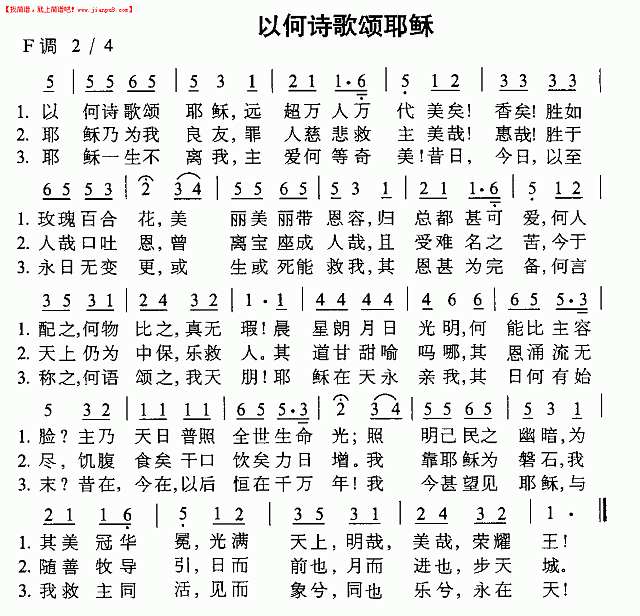 【我简谱，就上简谱吧！www.jianpu8.com】
以何诗歌颂耶稣
F调 2/4
5 | 5 5 6 5 | 5 3 1 | 2 1 1·6 | 5 1 2 | 3 3 3 | 3 3 5 |
1. 以 何诗歌颂 耶稣,远 超万人万 代美矣!香矣!胜如
2. 耶 稣乃为我 良友,罪 人慈悲救 主美哉!惠哉!胜于
3. 耶 稣一生不 离我,主 爱何等奇 美!昔日,今日,以至
6 5 5 3 | 2 3 4 | 5 5 6 5 | 5 3 1 | 2 1 1·6 | 5 1 2 |
1. 玫瑰百合 花,美 丽美丽带 恩容,归 总都甚可 爱,何人
2. 人哉口吐 恩,曾 离宝座成 人哉,且 受难名之 苦,今于
3. 永日无变 更,或 生或死能 救我,其 恩甚为完 备,何言
3 5 3 1 | 2 4 3 2 | 1·1 | 3 4 3 4 | 5 6 5 | 5 5 5·3 |
1. 配之,何物 比之,真无 瑕!晨 星朗月日 光明,何 能比主容
2. 天上仍为 中保,乐救 人。其 道甘甜喻 吗哪,其 恩涌流无
3. 称之,何语 颂之,我天 朋!耶 稣在天永 亲我,其 日何有始
5 3 2 | 1 4 4 4 | 5 5 5·3 | 2 3 4 | 5 5 6 5 | 5 3 1 |
1. 脸?主乃 天日普照 全世生命 光;照 明己民之 幽暗,为
2. 尽,饥腹 食矣干口 饮矣力日 增。我 靠耶稣为 磐石,我
3. 末?昔在,今在,以后 恒在千万 年!我 今甚望见 耶稣,与
2 1 1 6 | 5 1 2 | 3 5 3 1 | 2 4 3 2 | 1· ‖
1. 其美冠华 冕,光满 天上,明哉,美哉,荣耀 王!
2. 随善牧导 引,日而 前也,月而 进也,步天 城。
3. 我救主同 活,见而 象兮,同也 乐兮,永在 天!